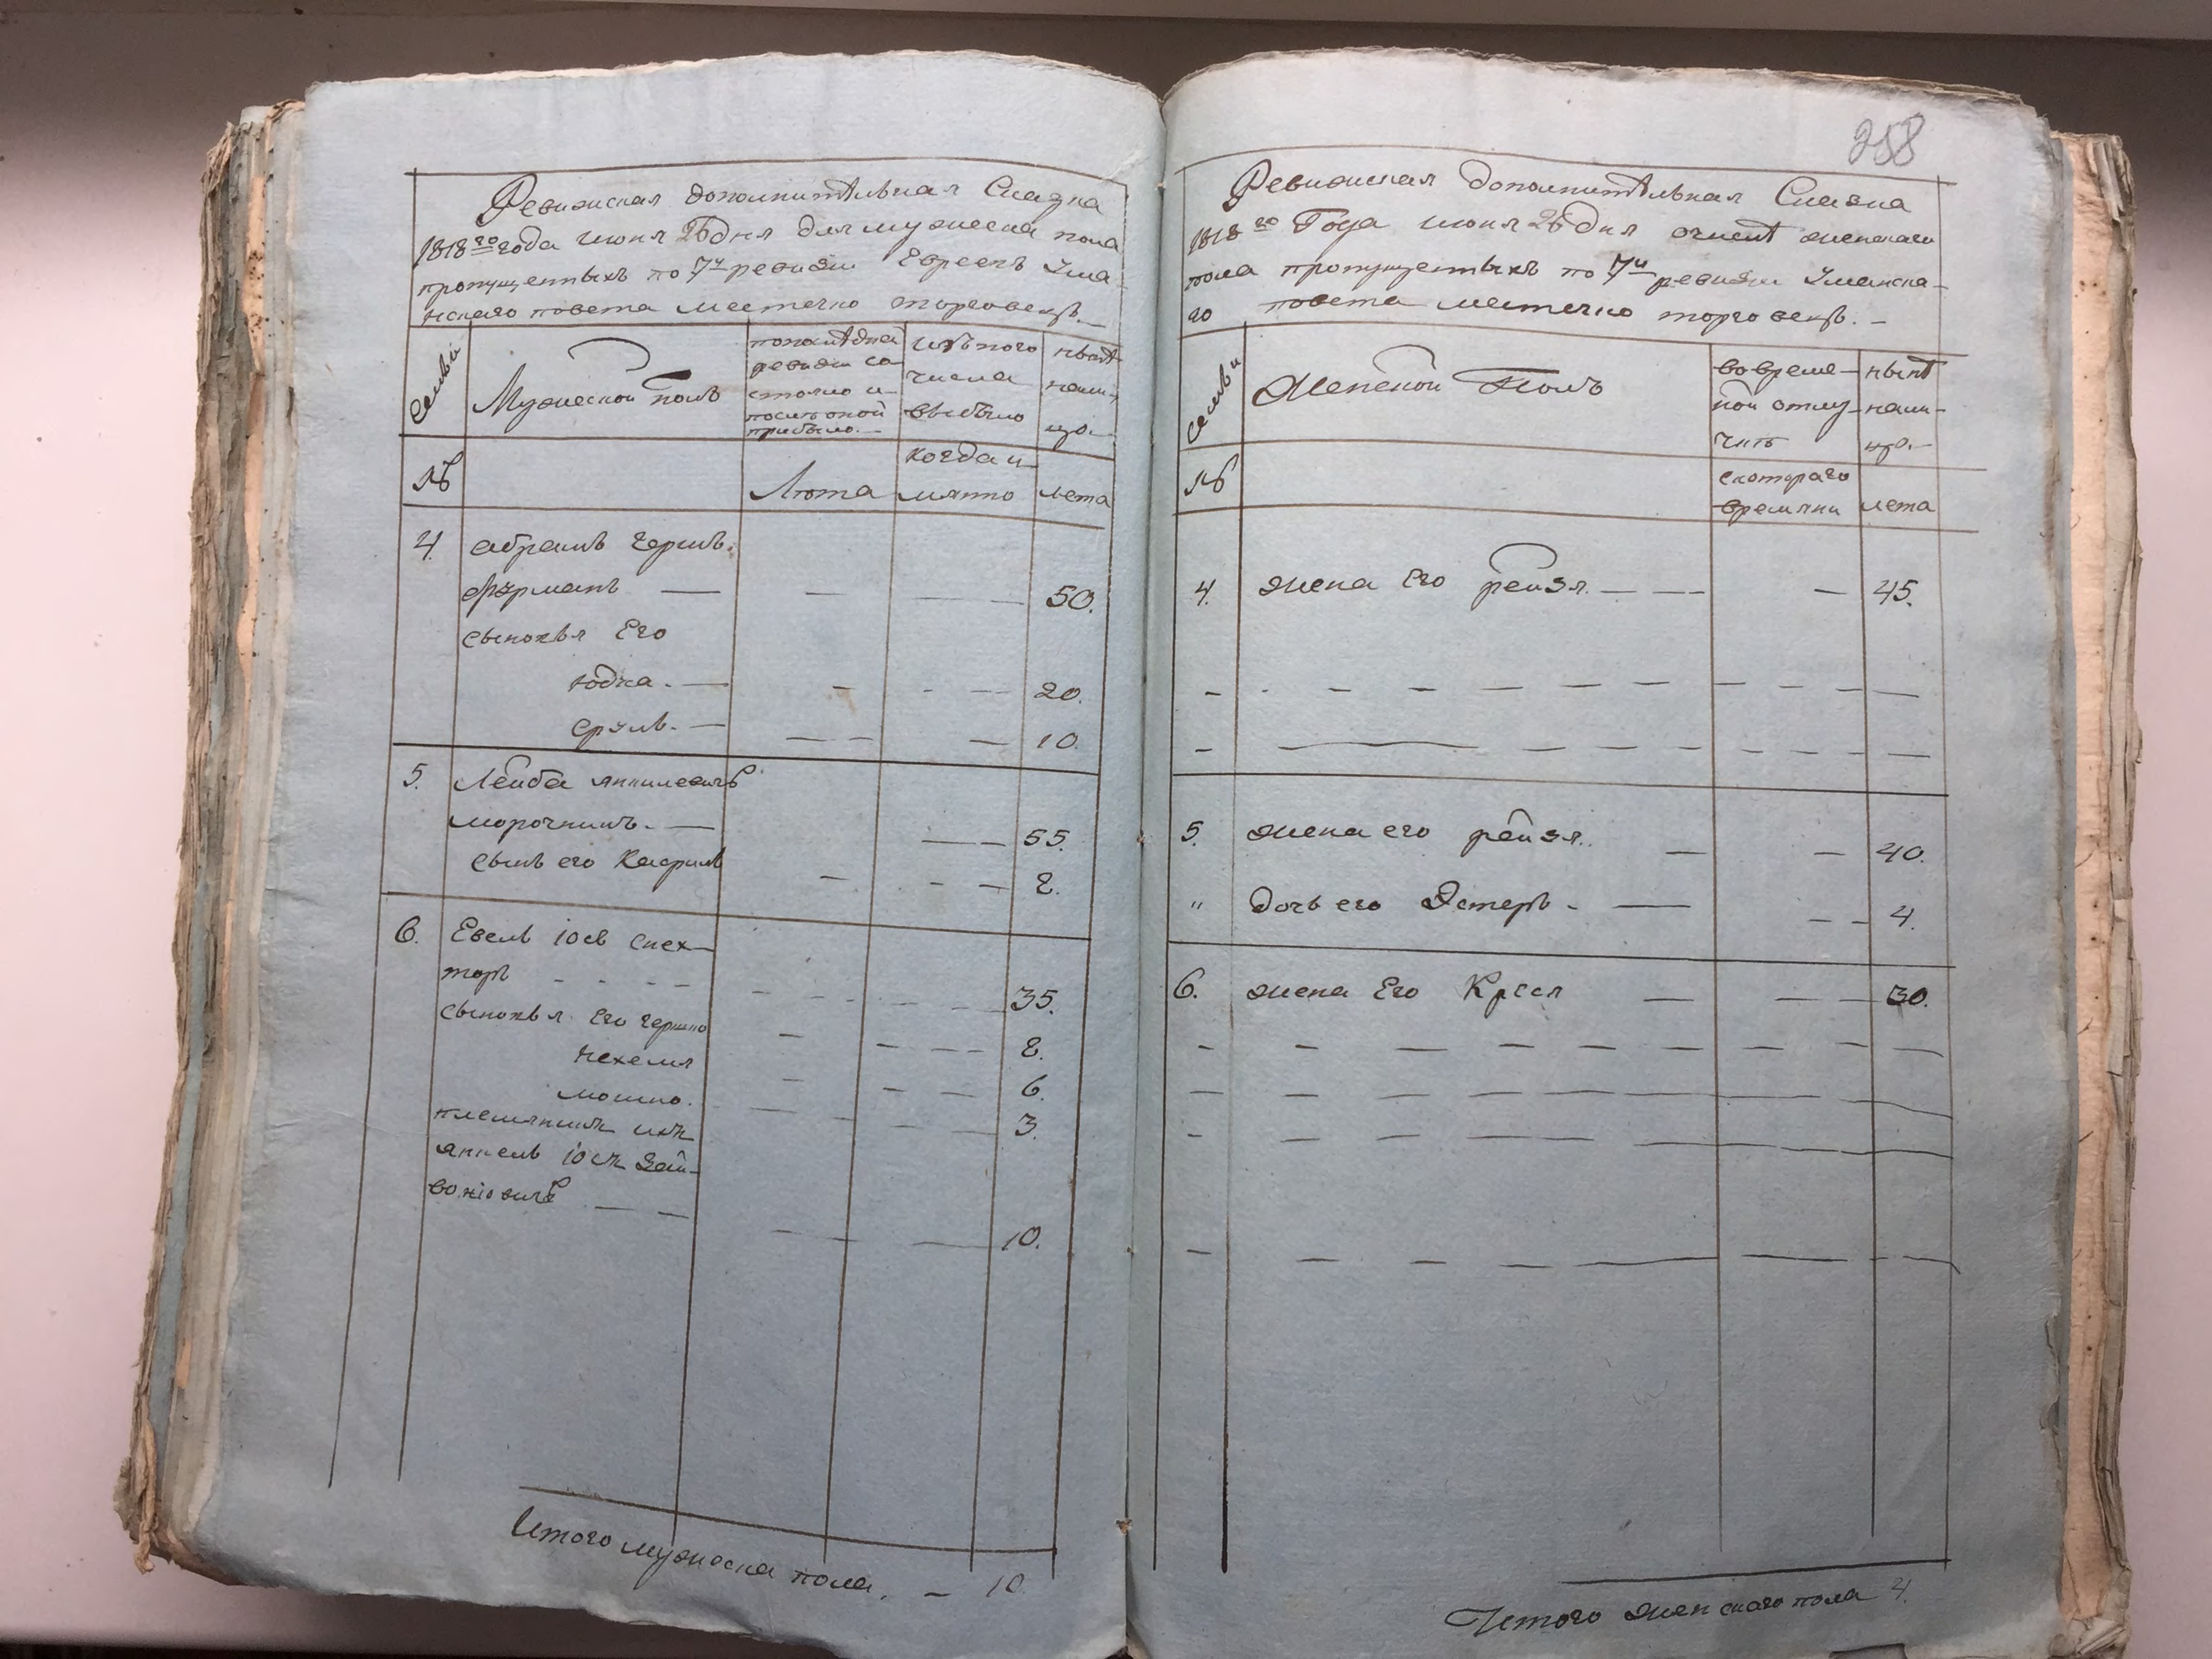 Ревижская дополнительная Сказка
1818го года июня 26 дня для мужеска пола
пропущенныхъ по 7й ревизии Евреевъ Ума-
нскаго повета местечко торговецъ.
Семьи
Мужеской полъ
попоследней
ревизии со-
стояло и
после оной
прибыло.
изъ того
числа
выбыло
ныне
нали-
цо.
№
Лета
когда и-
мянно
лета
4 абрамъ герш.
фурманъ 50.
сыновья Его
юдка. 20.
сруль. 10.
5. Лейба янкилевичъ
морочникъ. 55.
сынъ его Касриль 8.
6. Евель іос спек-
торъ 35.
сыновья Его гершко 8.
нехемя 6.
мошко. 3.
племянникъ ихъ
янкель іос Зай-
воніовичъ 10.
Итого мужеска пола. 10
258
Ревижская дополнительная Сказка
1818го Года июня 26 дня очисле женскаго
пола пропущенныхъ по 7й ревизии Уманска-
го повета местечко торговецъ.
Семьи
Женской Полъ
во време-
ной отлу-
чке
ныне
нали-
цо.
№
скотораго
времяни
лета
4. жена Его рейзя. 45.
5. жена его рейзя. 40.
" дочь его Эстеръ 4.
6. жена Его Креся 30.
Итого женскаго пола 4.